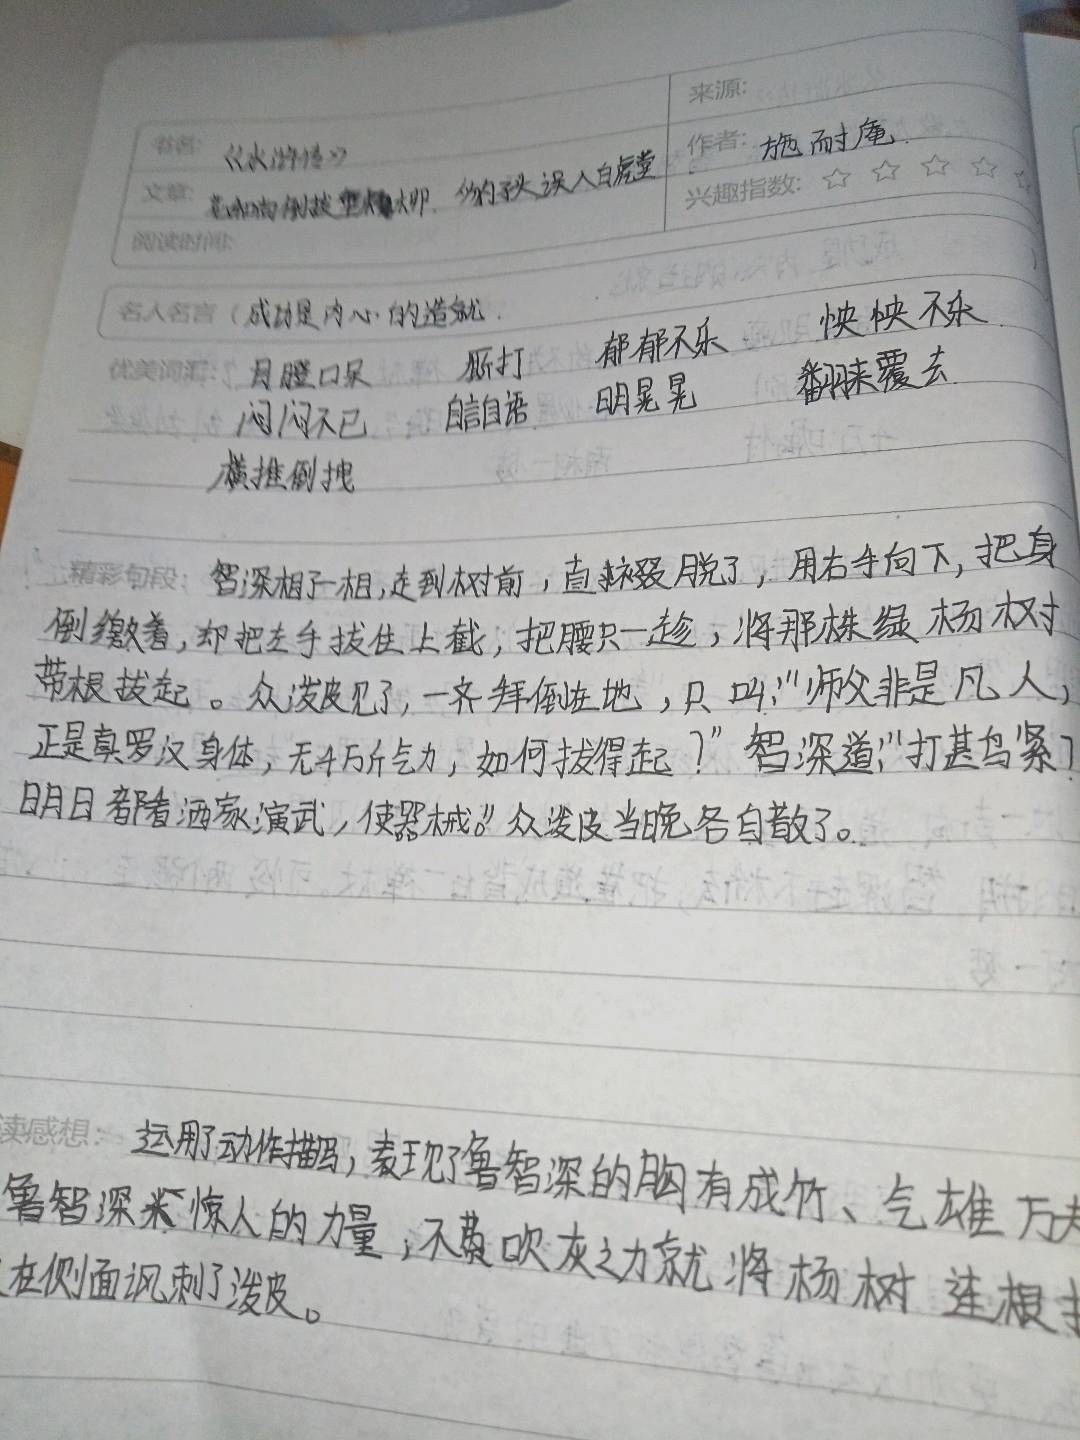 来源:
书名: 《水浒传》
作者: 施耐庵
文章: 倒拔 豹子头误入白虎堂
兴趣指数: ☆ ☆ ☆ ☆ ☆
阅读时间:
名人名言(成功是内心的造就.
优美词汇: 目瞪口呆 厮打 郁郁不乐 怏怏不乐
闷闷不已 自言自语 明晃晃 翻来覆去
横推倒拽
精彩句段: 智深相了一相,走到树前,直裰脱了,用右手向下,把身
倒缴着,却把左手拔住上截,把腰只一趁,将那株绿杨树
带根拔起。众泼皮见了,一齐拜倒在地,只叫:“师父非是凡人,
正是真罗汉身体,无千万斤气力,如何拔得起?”智深道:“打甚鸟紧?
明日都看洒家演武,使器械。”众泼皮当晚各自散了。
读感想: 运用了动作描写,表现了鲁智深的胸有成竹、气雄万
鲁智深 惊人的力量,不费吹灰之力就将杨树连根
在侧面讽刺了泼皮。